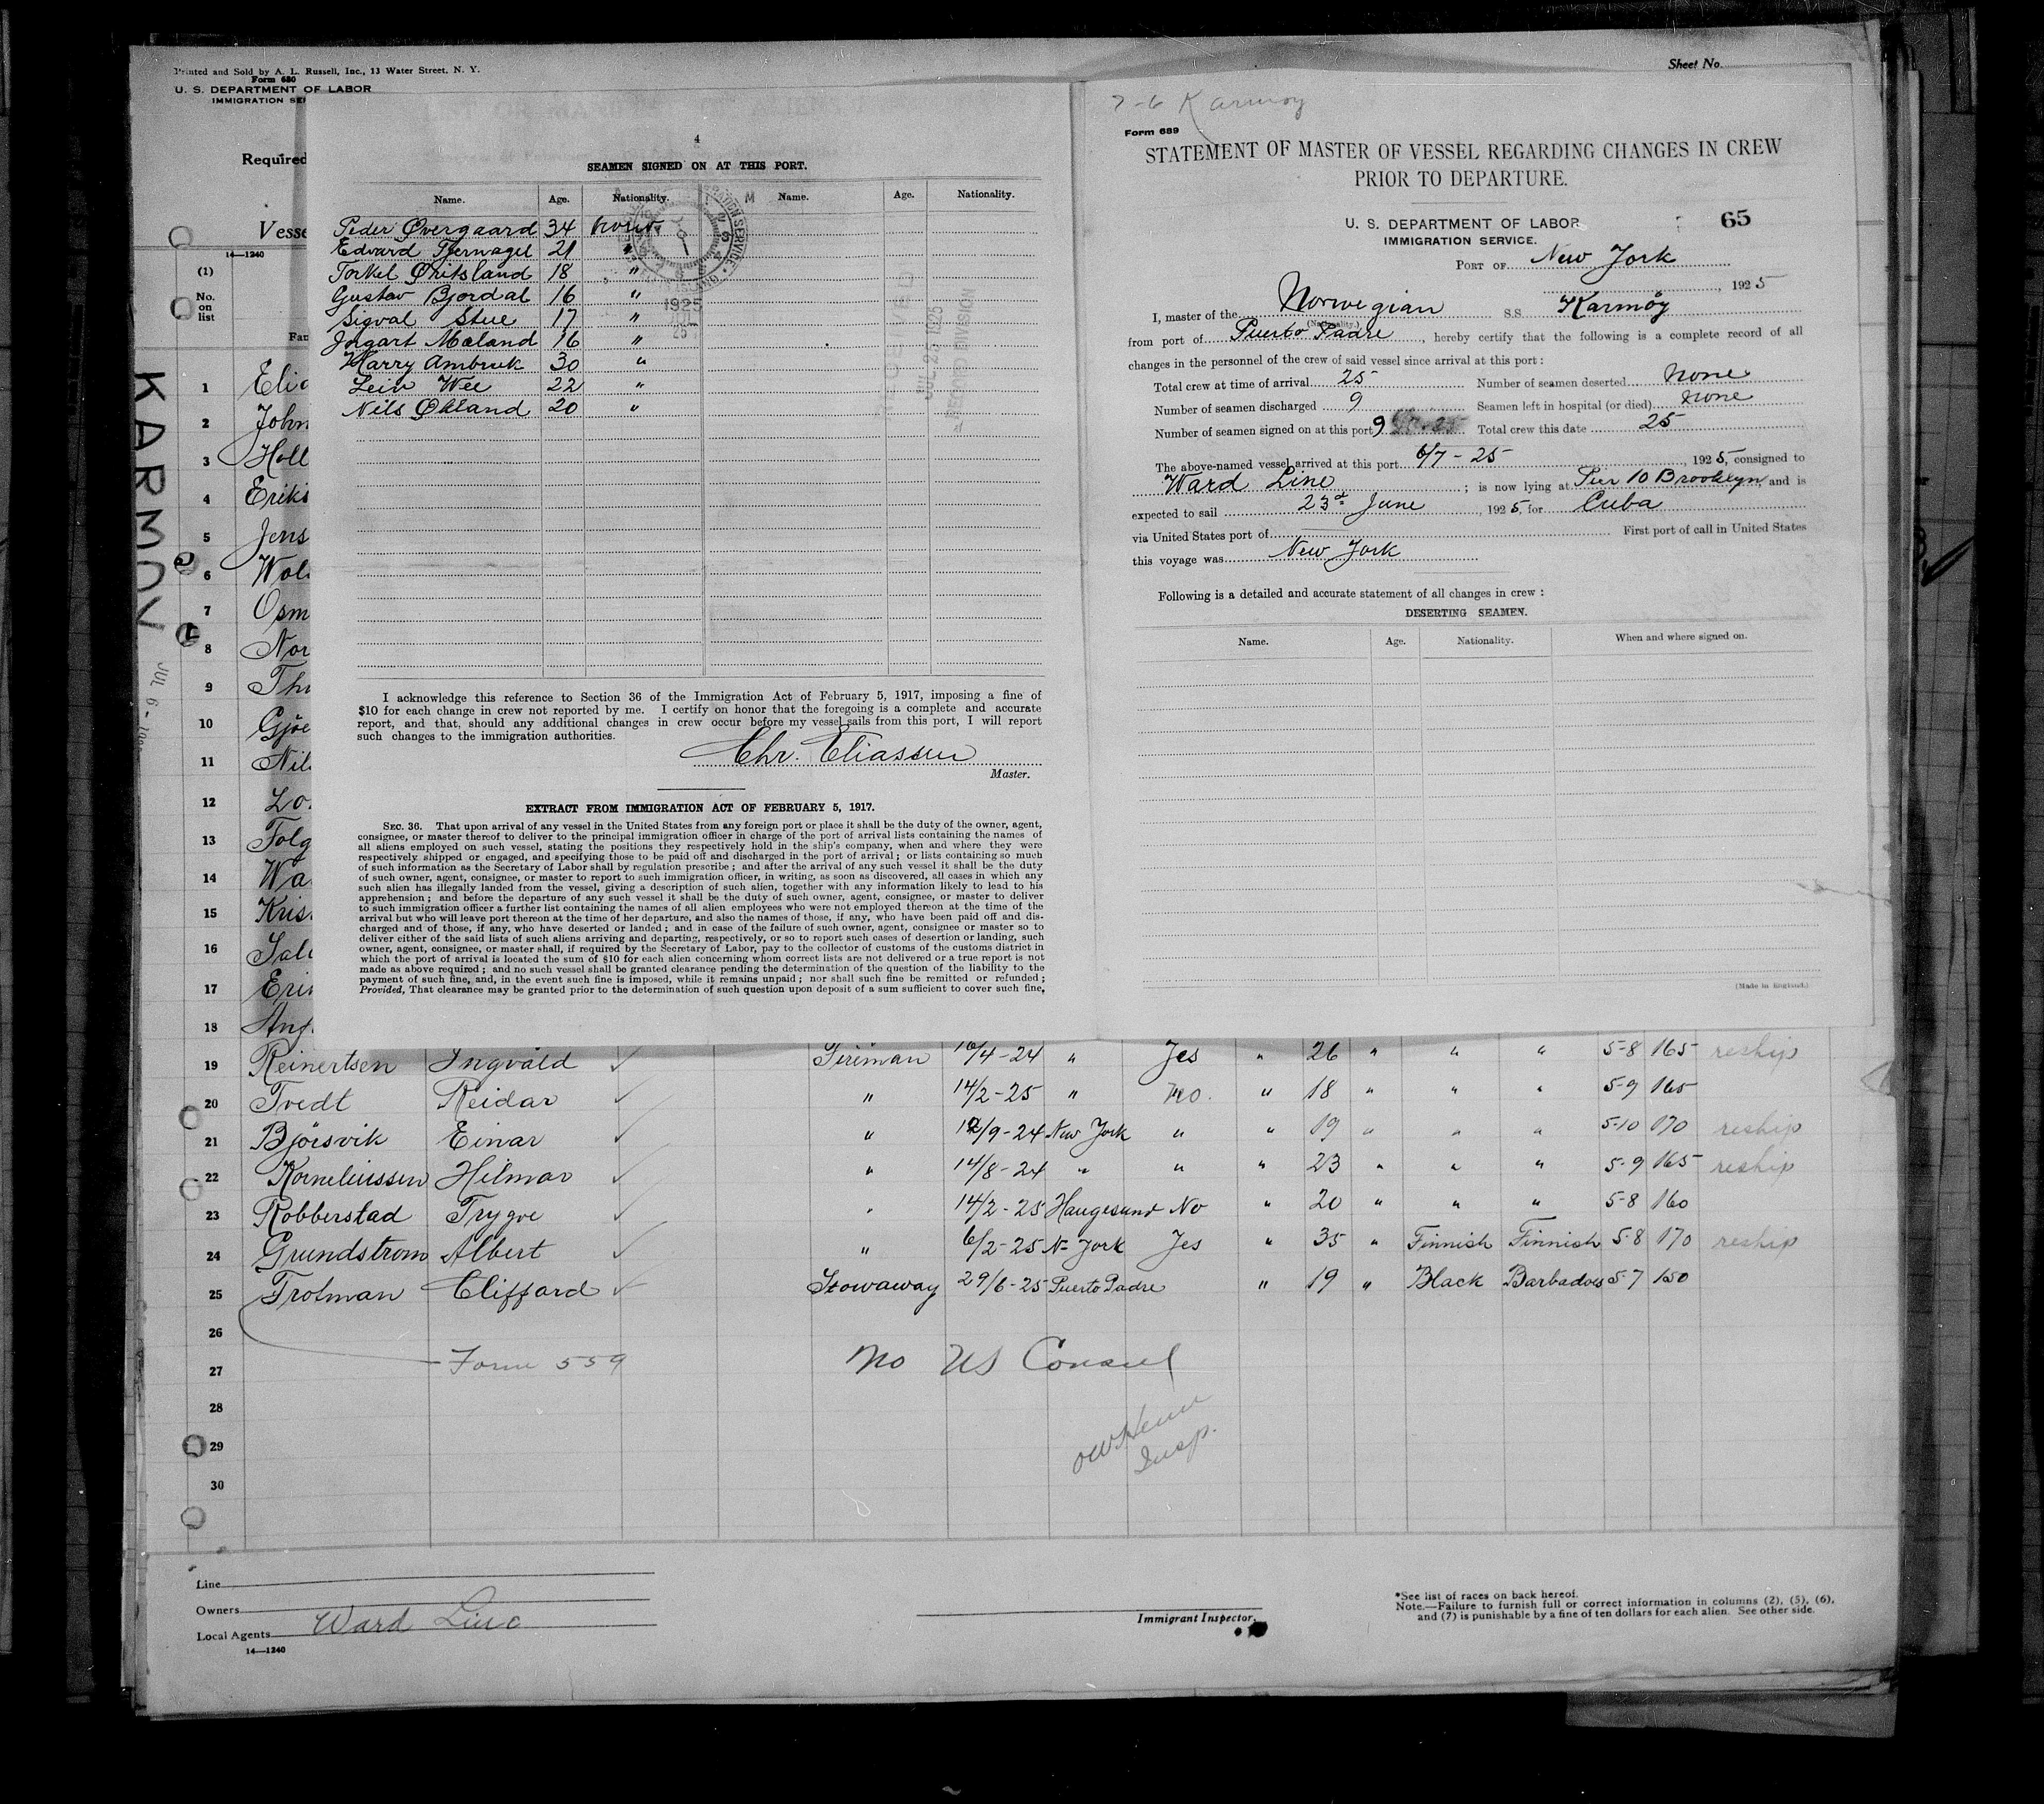 Printed and Sold by A. L. Russell, Inc., 13 Water Street, N. Y.
Form 680
U. S. DEPARTMENT OF LABOR
IMMIGRATION SE
Sheet No.
Required
Vesse
14—1240
(1)
No.
on
list
Fan
KARMOY
JUL 6 -
4
SEAMEN SIGNED ON AT THIS PORT.
Name. Age. Nationality. Name. Age. Nationality.
Peder Øvergaard 34 Norw.
Edvard Tjernagel 21 "
Torkel Øritsland 18 "
Gustav Bjordal 16 "
Sigval Stue 17 "
Ingart Mæland 16 "
Harry Ambruk 30 "
Leiv Wee 22 "
Nils Økland 20 "
1925
I acknowledge this reference to Section 36 of the Immigration Act of February 5, 1917, imposing a fine of
$10 for each change in crew not reported by me. I certify on honor that the foregoing is a complete and accurate
report, and that, should any additional changes in crew occur before my vessel sails from this port, I will report
such changes to the immigration authorities.
Chr. Eliassen
Master.
EXTRACT FROM IMMIGRATION ACT OF FEBRUARY 5, 1917.
SEC. 36. That upon arrival of any vessel in the United States from any foreign port or place it shall be the duty of the owner, agent,
consignee, or master thereof to deliver to the principal immigration officer in charge of the port of arrival lists containing the names of
all aliens employed on such vessel, stating the positions they respectively hold in the ship's company, when and where they were
respectively shipped or engaged, and specifying those to be paid off and discharged in the port of arrival; or lists containing so much
of such information as the Secretary of Labor shall by regulation prescribe; and after the arrival of any such vessel it shall be the duty
of such owner, agent, consignee, or master to report to such immigration officer, in writing, as soon as discovered, all cases in which any
such alien has illegally landed from the vessel, giving a description of such alien, together with any information likely to lead to his
apprehension; and before the departure of any such vessel it shall be the duty of such owner, agent, consignee, or master to deliver
to such immigration officer a further list containing the names of all alien employees who were not employed thereon at the time of the
arrival but who will leave port thereon at the time of her departure, and also the names of those, if any, who have been paid off and dis-
charged and of those, if any, who have deserted or landed; and in case of the failure of such owner, agent, consignee or master so to
deliver either of the said lists of such aliens arriving and departing, respectively, or so to report such cases of desertion or landing, such
owner, agent, consignee, or master shall, if required by the Secretary of Labor, pay to the collector of customs of the customs district in
which the port of arrival is located the sum of $10 for each alien concerning whom correct lists are not delivered or a true report is not
made as above required; and no such vessel shall be granted clearance pending the determination of the question of the liability to the
payment of such fine, and, in the event such fine is imposed, while it remains unpaid; nor shall such fine be remitted or refunded;
Provided, That clearance may be granted prior to the determination of such question upon deposit of a sum sufficient to cover such fine,
7-6 Karmoy
Form 689
STATEMENT OF MASTER OF VESSEL REGARDING CHANGES IN CREW
PRIOR TO DEPARTURE.
U. S. DEPARTMENT OF LABOR 65
IMMIGRATION SERVICE.
PORT OF New York
, 1925
I, master of the Norwegian S.S. Karmöy
(Nationality.)
from port of Puerto Padre, hereby certify that the following is a complete record of all
changes in the personnel of the crew of said vessel since arrival at this port:
Total crew at time of arrival 25 Number of seamen deserted None
Number of seamen discharged 9 Seamen left in hospital (or died) None
Number of seamen signed on at this port 9 Total crew this date 25
The above-named vessel arrived at this port 6/7-25, 1925, consigned to
Ward Line; is now lying at Pier 10 Brooklyn, and is
expected to sail 23d June, 1925, for Cuba
via United States port of First port of call in United States
this voyage was New York
Following is a detailed and accurate statement of all changes in crew:
DESERTING SEAMEN.
Name. Age. Nationality. When and where signed on.
(Made in England.)
1 Elia
2 John
3 Holl
4 Eriks
5 Jens
6 Wol
7 Osm
8 Nor
9 Tho
10 Gjöe
11 Nil
12 Lo
13 Folg
14 Wa
15 Kris
16 Sal
17 Erin
18 Ang
19 Reinertsen Ingvald Fireman 16/4-24 " Yes " 26 " " " 5-8 165 reship
20 Tvedt Reidar " 14/2-25 " No. " 18 " " " 5-9 165
21 Björsvik Einar " 12/9-24 New York " " 19 " " " 5-10 170 reship
22 Korneliussen Hilmar " 14/8-24 " " " 23 " " " 5-9 165 reship
23 Robberstad Trygve " 14/2-25 Haugesund No " 20 " " " 5-8 160
24 Grundstrom Albert " 6/2-25 N-York Yes " 35 " Finnish Finnish 5-8 170 reship
25 Trotman Clifford Stowaway 29/6-25 Puerto Padre " 19 " Black Barbados 5-7 150
26
27 Form 559 No US Consul
28
29
30
Insp.
Line
Owners
Local Agents Ward Line
14—1240
Immigrant Inspector.
*See list of races on back hereof.
Note.—Failure to furnish full or correct information in columns (2), (5), (6),
and (7) is punishable by a fine of ten dollars for each alien. See other side.